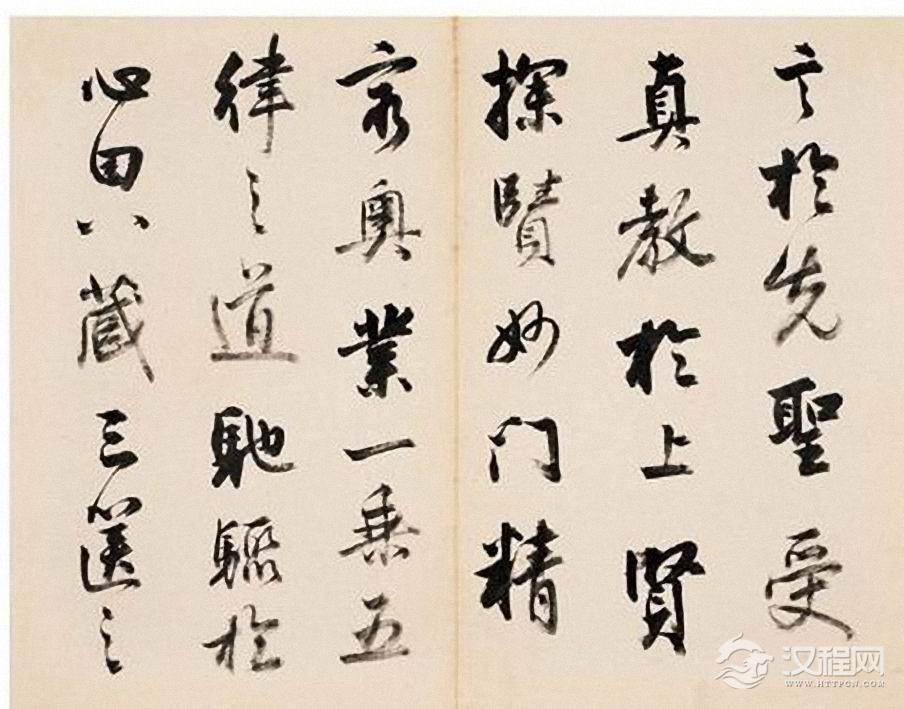 言於先聖受
真教於上賢
探賾妙门精
窮奥業一乘五
律之道馳驟於
心田八藏三篋之
汉程网
WWW.HTTPCN.COM